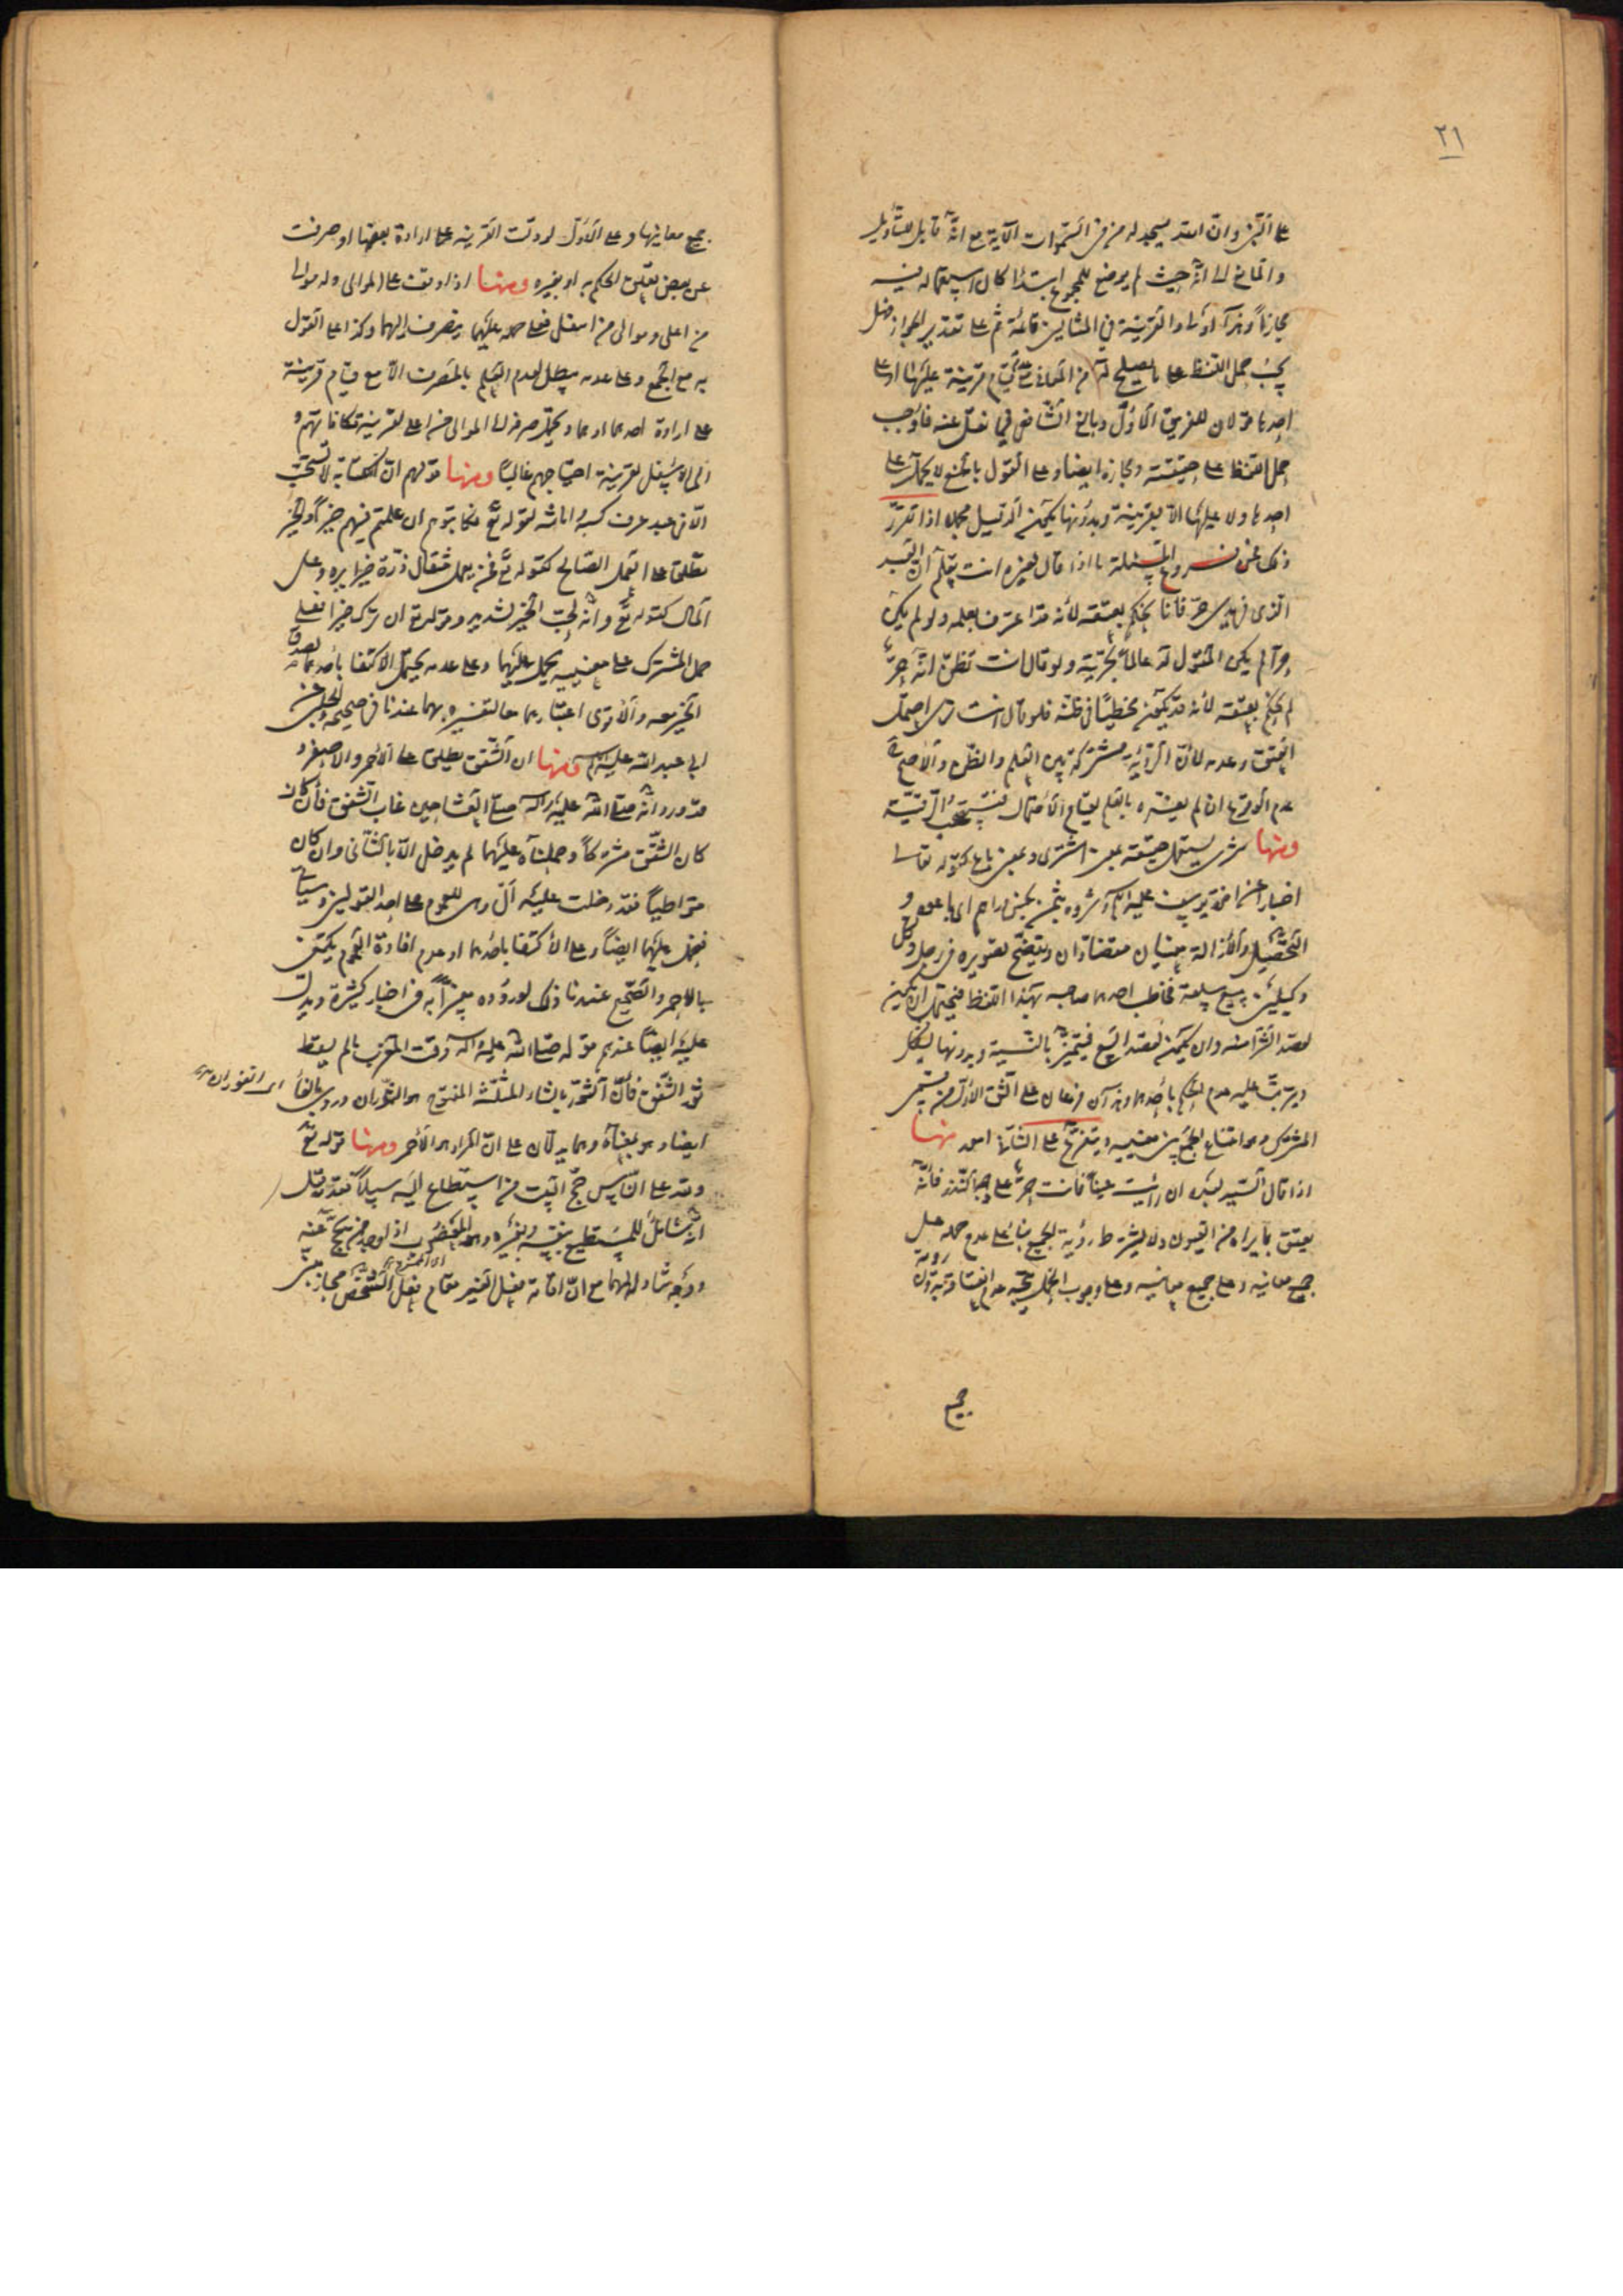 ٢١
على النبي وان الله يسجد له من في السموات الآية مع انه قابل للتأويل
والمانع الى انه حيث لم يوضع للمجموع ابتداء كان استعماله فيه
مجازاً وهذا اولى والقرينة في المثالين قائمة ثم على تقدير الجواز هل
يجب حمل اللفظ على ما يصلح له من المعاني عند قيام قرينة عليها او على
احدها قولان للفريق الاول وبالغ الشافعي فيما نقل عنه فاوجب
حمل اللفظ على حقيقته ومجازه ايضا وعلى القول بالمنع لا يحمل على
احدها ولا عليها الا بقرينة وبدونها يكون الدليل مجملا اذا تقرر
ذلك فمن فروع المسئلة ما اذا قال لغيره انت تعلم ان العبد
الذي في يدي حر فانا نحكم بعتقه لأنه قد اعترف بعلمه ولو لم يكن
حراً لم يكن المقول له عالماً بحريته ولو قال انت تظن انه حر
لم نحكم بعتقه لأنه قد يكون مخطئاً في ظنه فلو قال انت ترى احتمل
العتق وعدمه لأن الرؤية مشتركة بين العلم والظن والأصح
عدم الوقوع ان لم يفسره بالعلم لقيام الاحتمال فيستصحب الرقية
ومنها شرى يستعمل حقيقة بمعنى اشترى وبمعنى باع كقوله تعالى
اخبارا عن اخوة يوسف عليه السلام وشروه بثمن بخس دراهم اي باعوه و
التحصيل والازالة معنيان متضادان ويتضح تصويره في رجل وكل
وكيلين ببيع سلعة فخاطب احدهما صاحبه بهذا اللفظ فيحتمل ان يكون
لعقد الشراء منه وان يكون لعقد البيع فيتميز بالنية وبدونها يشكل
ويترتب عليه عدم الحكم بأحدهما وهذان فرعان على الشق الأول من قسمي
المشترك وهو امتناع الجمع بين معنييه ويتفرع على الثاني امور منها
اذا قال السيد لعبده ان رأيت عيناً فأنت حر على وجه النذر فأنه
يعتق بما يراه من العيون ولا يشترط رؤية الجميع بناء على عدم حمله على
جميع معانيه وعلى جميع معانيه وعلى وجوب الحمل يتجه عدم العتق بدون رؤية
جميع
جميع معانيها وعلى الأول لو دلت القرينة على ارادة بعضها او صرفت
عن بعض تعلق الحكم به او بغيره ومنها اذا وقف على الموالي وله موالي
من اعلى وموالي من اسفل فعلى حمله عليهما ينصرف اليهما وكذا على القول
به مع الجمع وعلى عدمه يبطل لعدم العلم بالمصرف الا مع قيام قرينة
على ارادة احدهما او هما ويحتمل صرفه الى الموالي من اعلى لقرينة مكافاتهم و
الى الاسفل لقرينة احتياجهم غالباً ومنها قولهم ان الكتابة لا تستحب
الا في عبد عرف كسبه وامانته لقوله تع فكاتبوهم ان علمتم فيهم خيراً والخير
يطلق على العمل الصالح كقوله تع فمن يعمل مثقال ذرة خيرا يره وعلى
المال كقوله تع وانه لحب الخير لشديد وقوله تع ان ترك خيرا فعلى
حمل المشترك على معنييه يحمل عليهما وعلى عدمه يحتمل الاكتفا بأحدهما لصدق
الخير معه والأقوى اعتبارهما معا لتفسيره بهما عندنا في صحيحة الحلبي عن
ابي عبد الله عليه السلام ومنها ان الشفق يطلق على الأحمر والاصفر و
قد ورد انه صلى الله عليه وآله صلى العشاء حين غاب الشفق فأن كان
كان الشفق مشتركاً وحملناه عليهما لم يدخل الا بالثاني وان كان
متواطياً فقد دخلت عليه ال وهي للعموم على احد القولين وسيأتي
فيحمل عليهما ايضاً وعلى الأكتفا باحدهما او عدم افادة العموم يكتفى
بالاحمر والصحيح عندنا ذلك لوروده مفسراً به في اخبار كثيرة ويدل
عليه ايضاً عندهم قوله صلى الله عليه وآله وقت المغرب ما لم يسقط
ثور الشفق فأن الثور بالثاء المثلثة المفتوح هو الثوران وروي بالفاء
اي الفوران
ايضا وهو بمعناه وهما يدلان على ان المراد هو الأحمر ومنها قوله تع
ولله على الناس حج البيت من استطاع اليه سبيلاً فقد يقال
انه شامل للمستطيع بنفسه وبغيره وهو المعضوب اذا وجد من يحج عنه
ووجه شموله لهما مع ان اقامة فعل الغير مقام فعل الشخص مجاز مبني